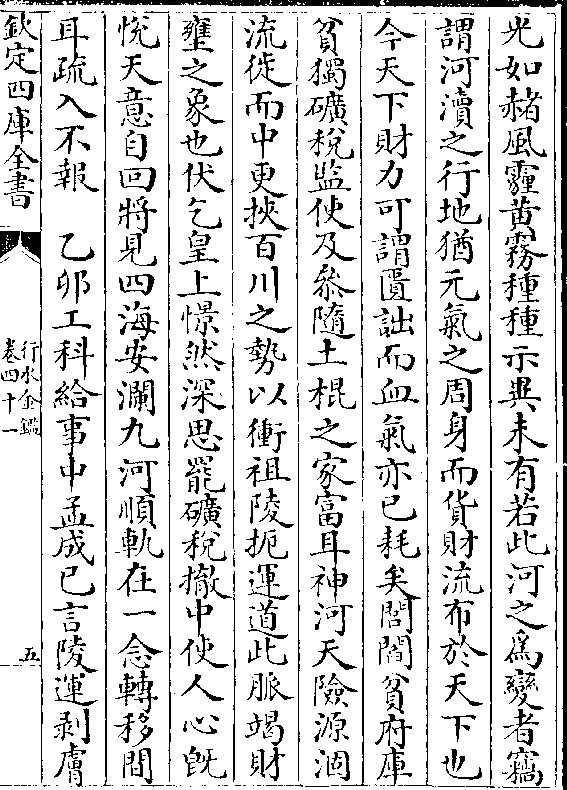 光如赭風霾黄霧種種示異未有若此河之為變者竊
謂河瀆之行地猶元氣之周身而貨財流布於天下也
今天下財力可謂匱詘而血氣亦已耗矣閭閻貧府庫
貧獨礦稅監使及叅隨土棍之家富耳神河天險源涸
流徙而中更挾百川之勢以衝祖陵扼運道此脈竭財
壅之象也伏乞皇上憬然深思罷礦稅撤中使人心旣
悅天意自回將見四海安瀾九河順軌在一念轉移間
耳疏入不報　乙卯工科給事中孟成已言陵運剥膚
欽定四庫全書
行水金鑑
卷四十一
五